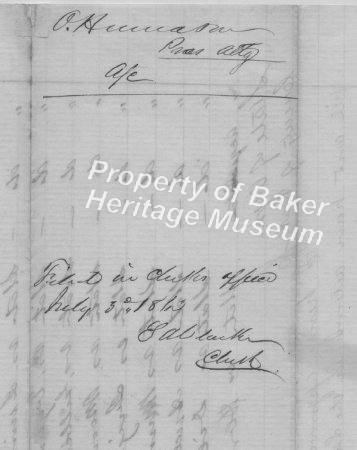 O. Humason
Pros Atty
A/c
Property of Baker
Heritage Museum
Filed in Clerks office
July 3d 1863
Clerk